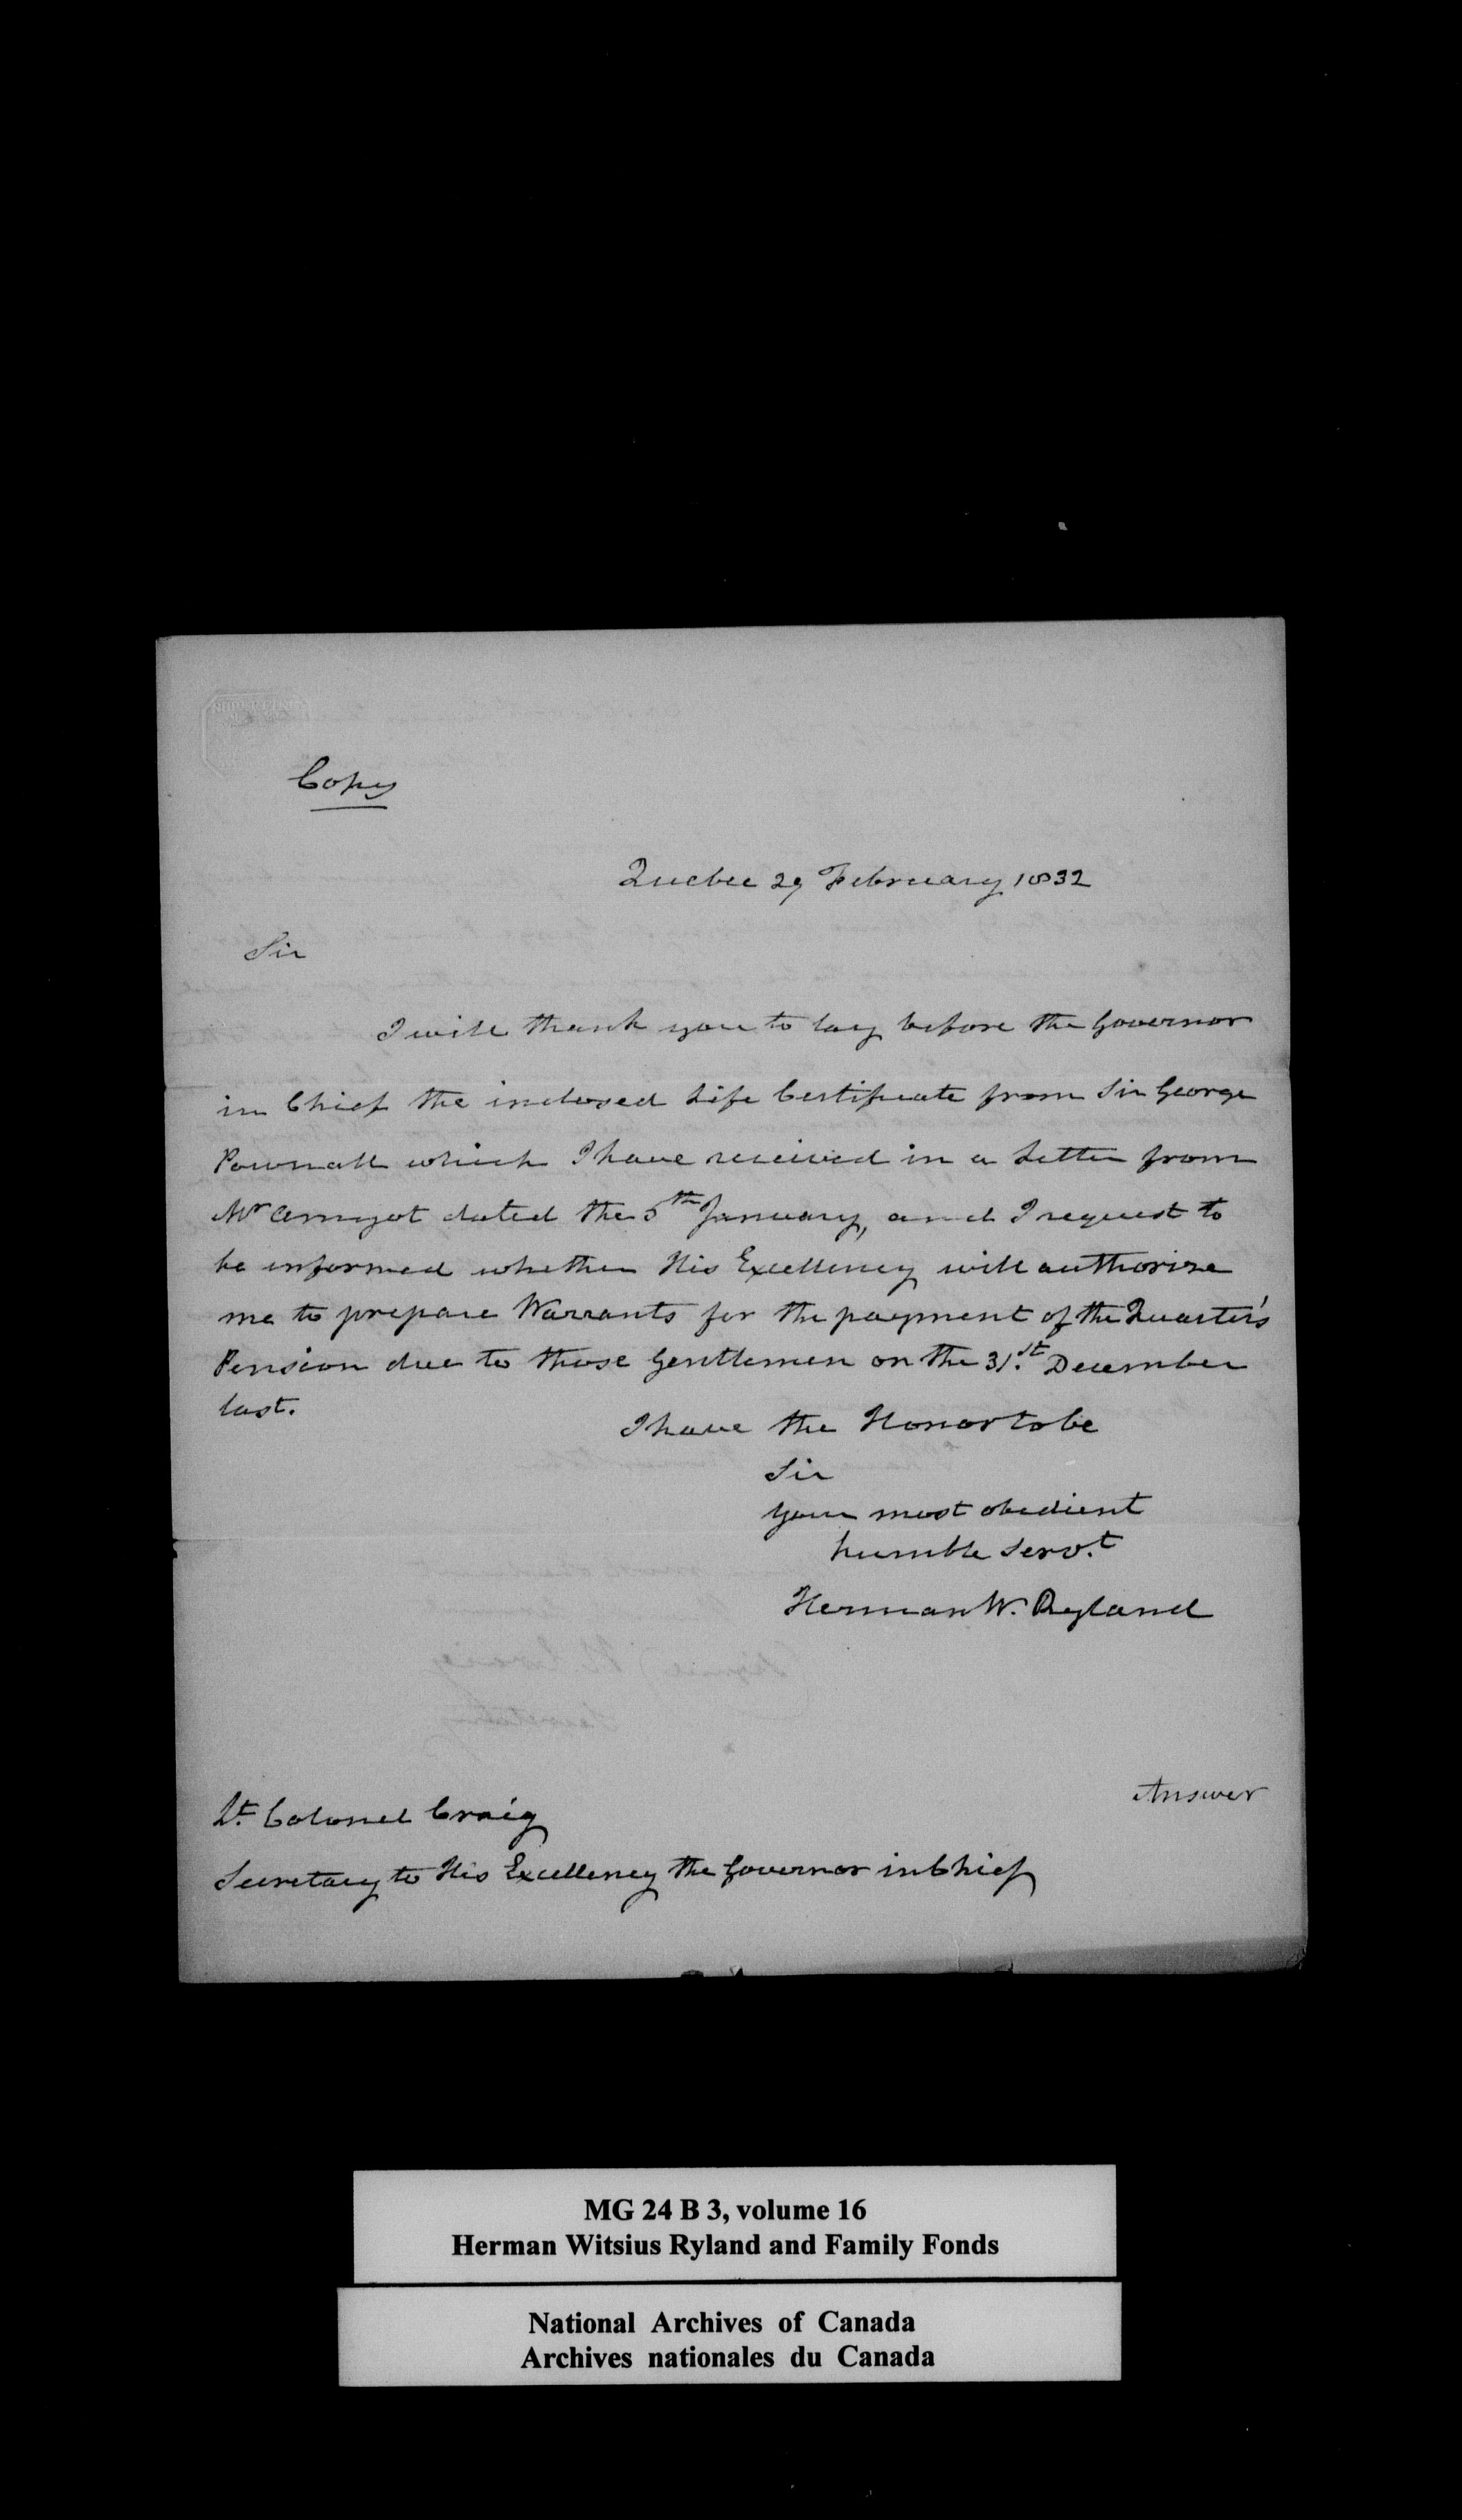 Copy
Quebec 29 February 1832
Sir
I will thank you to lay before the Governor
in Chief the inclosed Life Certificate from Sir George
Pownall which I have received in a Letter from
Mr Amyot dated the 5th January, and I request to
be informed whether His Excellency will authorize
me to prepare Warrants for the payment of the Quarter's
Pension due to those Gentlemen on the 31.st December
last.
I have the Honor to be
Sir
Your most obedient
humble Serv.t
Herman W. Ryland
Answer
Lt. Colonel Craig
Secretary to His Excellency the Governor in Chief
MG 24 B 3, volume 16
Herman Witsius Ryland and Family Fonds
National Archives of Canada
Archives nationales du Canada